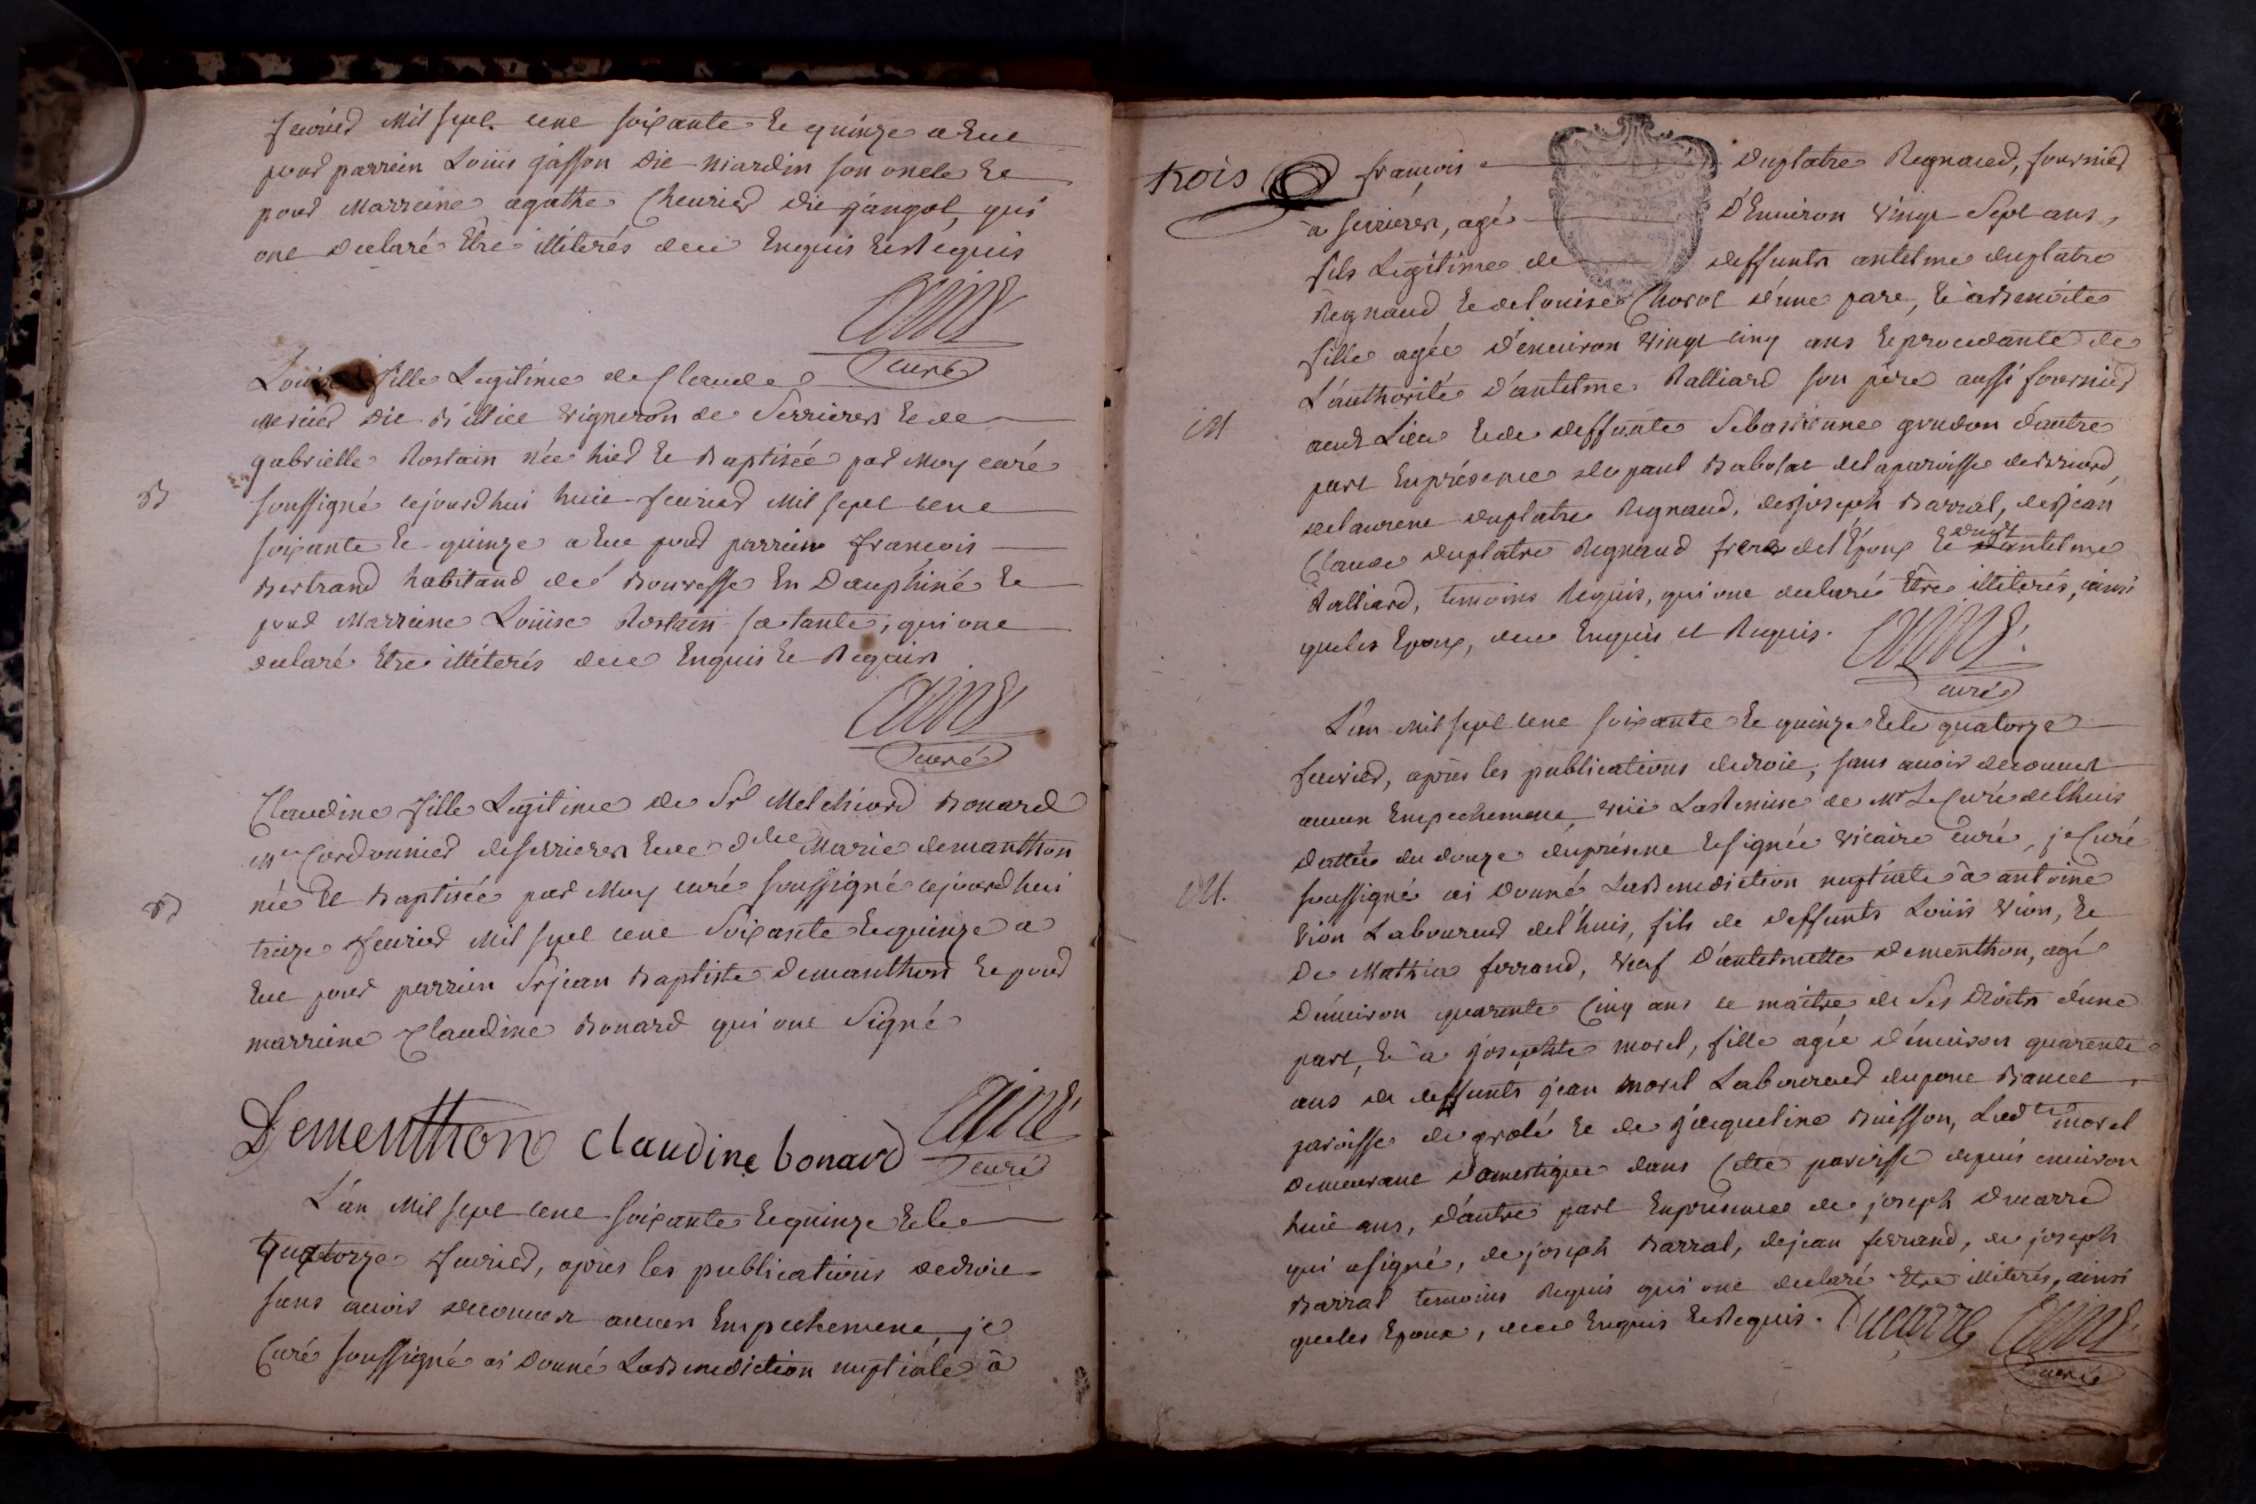 fevrier Mil sept cent soixante et quinze a Eut
pour parrein Louis gasson dit nardin son oncle et
pour Marreine agathe Cheurier dit gangot, qui
ont declaré Etre illiterés dece Enquis et Requis
Curé
Louise fille Legitime de Claude
mercier dit Billiet vigneron de Serrieres et de
gabrielle Rostain née hier et Baptisée par Moy curé
B
soussigné cejourdhui huit fevrier Mil sept cent
soixante et quinze a Eut pour parrein francois
Bertrand habitand de Bouvesse En Dauphiné et
pour Marreine Loüise Rostain sa tante, qui ont
declaré Etre illiterés dece Enquis et Requis
Curé
Claudine fille Legitime de Sr Melchiord Bonard
Mre Cordonnier de serrieres et de dlle Marie demanthon
née et Baptisée par Moy curé soussigné cejourdhui
B
treize fevrier Mil sept cent Soixante et quinze a
Eut pour parrein Sr jean Baptiste Demanthon et pour
marreine Claudine Bonard qui ont Signé
Dementhon Claudine bonard
Curé
L'an Mil sept cent soixante et quinze et le
quatorze fevrier, après les publications de droit
sans avoir decouvert aucun Empechement, je
Curé soussigné ai Donné La Benediction nuptiale à
trois
françois Duplatre Regnaud, fournier
à serrieres, agé D'Environ vingt Sept ans,
fils Legitime de deffunts antelme duplatre
Regnaud et de Louise Chorot d'une part, et à Benoite
fille agée d'environ vingt cinq ans et procedante de
L'authorité d'antelme Ralliard son père aussi fournier
M
aud Lieu et de deffunte Sebastienne grudon d'autre
part En présence de paul Babolat de la paroisse de Briord,
de laurent duplatre Regnaud, de joseph Barral, de jean
Claude duplatre Regnaud frere de l'Epoux et dudit antelme
Ralliard, temoins Requis, qui ont declaré Etre illiterés, ainsi
que les Epoux, dece Enquis et Requis.
Curé
L'an Mil sept cent soixante et quinze et le quatorze
fevrier, après les publications de droit, sans avoir decouvert
aucun Empechement, veü La Remise de Mr Le Curé de Lhuis
dattée du douze du présent et signée vicaire curé, je Curé
M.
soussigné ai Donné La Benediction nuptiale à antoine
vion Laboureur de Lhuis, fils de deffunts Loüis vion, et
De Mathia ferrand, veuf D'antelmette Dementhon, agé
D'environ quarente Cinq ans et maître de Ses Droits d'une
part, et à josephte morel, fille agée d'environ quarente
ans de deffunts jean morel Laboureur du pont Bancet
paroisse de grolé et de jacqueline Buisson, Ladte morel
Demeurant Domestique dans Cette paroisse depuis environ
huit ans, d'autre part En présence de joseph Ducarre
qui a signé, de joseph Barral, de jean ferrand, de joseph
Barral temoins Requis qui ont declaré Etre illiterés, ainsi
que les Epoux, dece Enquis et Requis. Ducarre
Curé